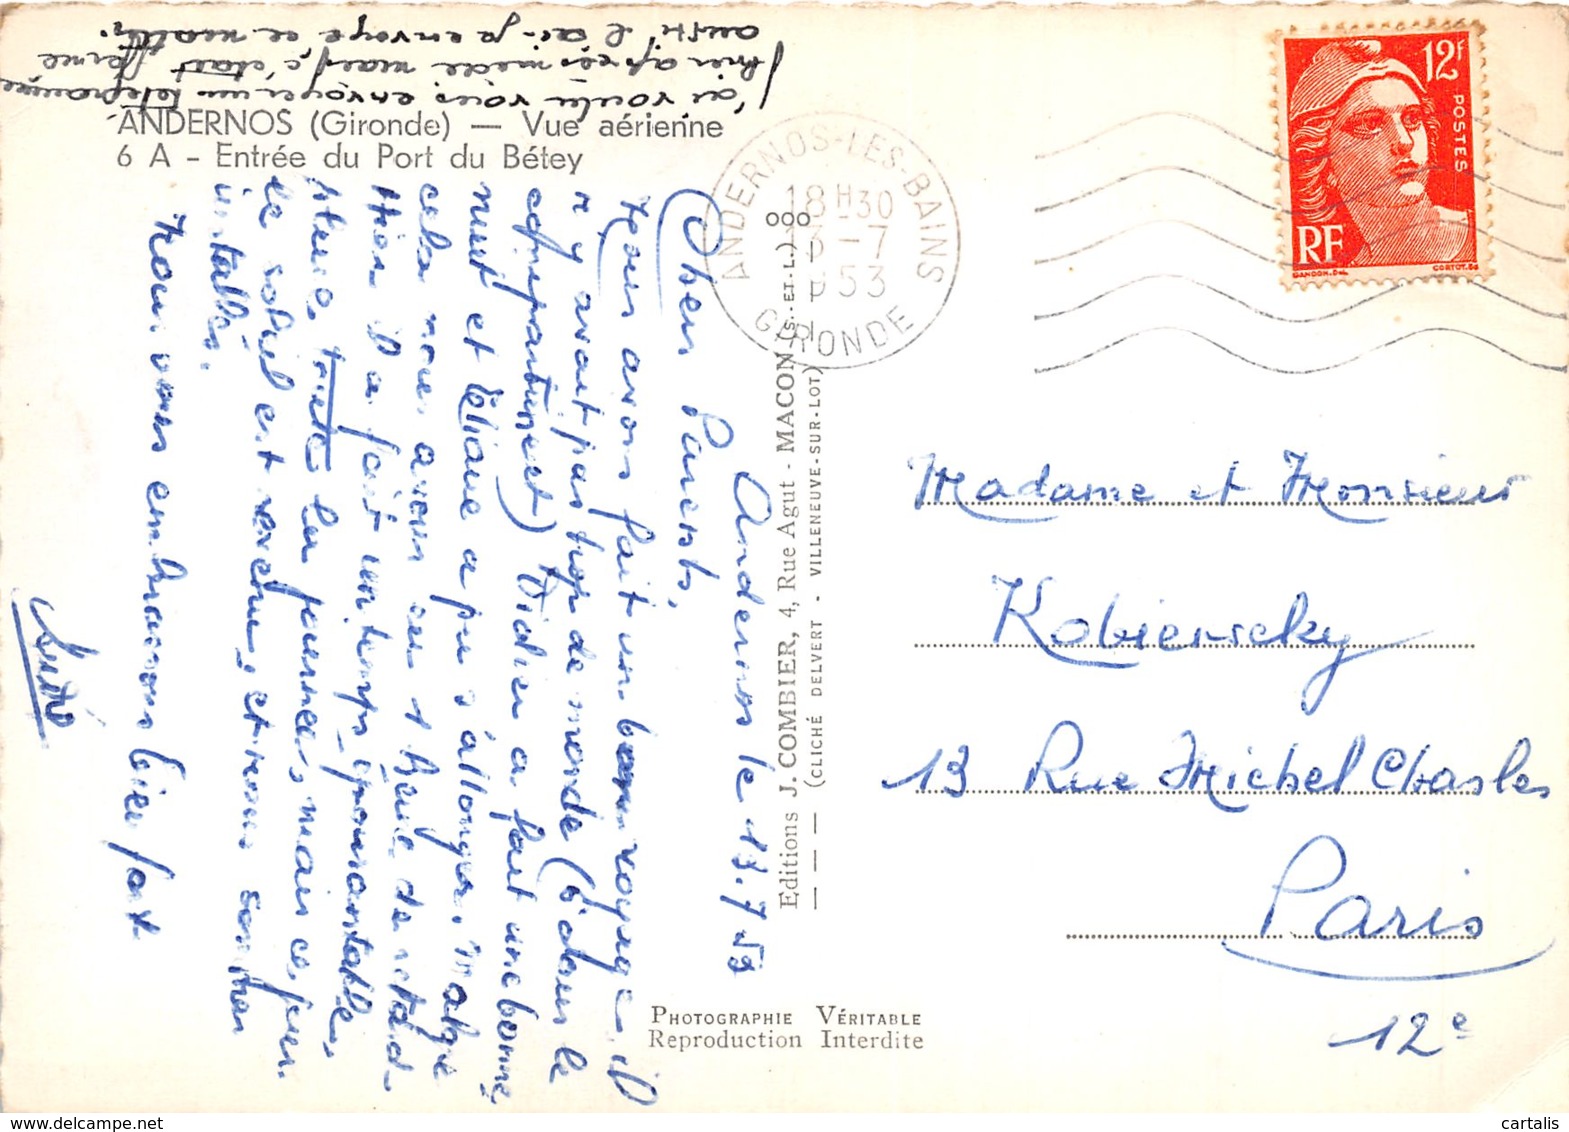 j'ai voulu vous envoyer un télégramme
hier après-midi mais c'était fermé
aussi j'ai envoyé ce matin.
ANDERNOS (Gironde) — Vue aérienne
6 A - Entrée du Port du Bétey
Andernos le 13.7 53
Chers Parents,
Nous avons fait un bon voyage, il
n'y avait pas trop de monde (6 dans le
compartiment) Didier a fait une bonne
nuit et Eliane a pu s'allonger, malgré
cela nous avons eu 1 heure de retard.
Hier il a fait un temps épouvantable,
pluie toute la journée, mais ce jour
le soleil est revenu, et nous sommes
installés.
Nous vous embrassons bien fort
Editions J. COMBIER, 4, Rue Agut - MACON (S.-ET-L.)
(CLICHÉ DELVERT - VILLENEUVE-SUR-LOT)
PHOTOGRAPHIE VÉRITABLE
Reproduction Interdite
ANDERNOS-LES-BAINS
18H30
13-7
1953
GIRONDE
12F
POSTES
RF
GANDON.DEL
CORTOT.SC
Madame et Monsieur
Kobiersky
13 Rue Michel Chasles
Paris
12e
cartalis